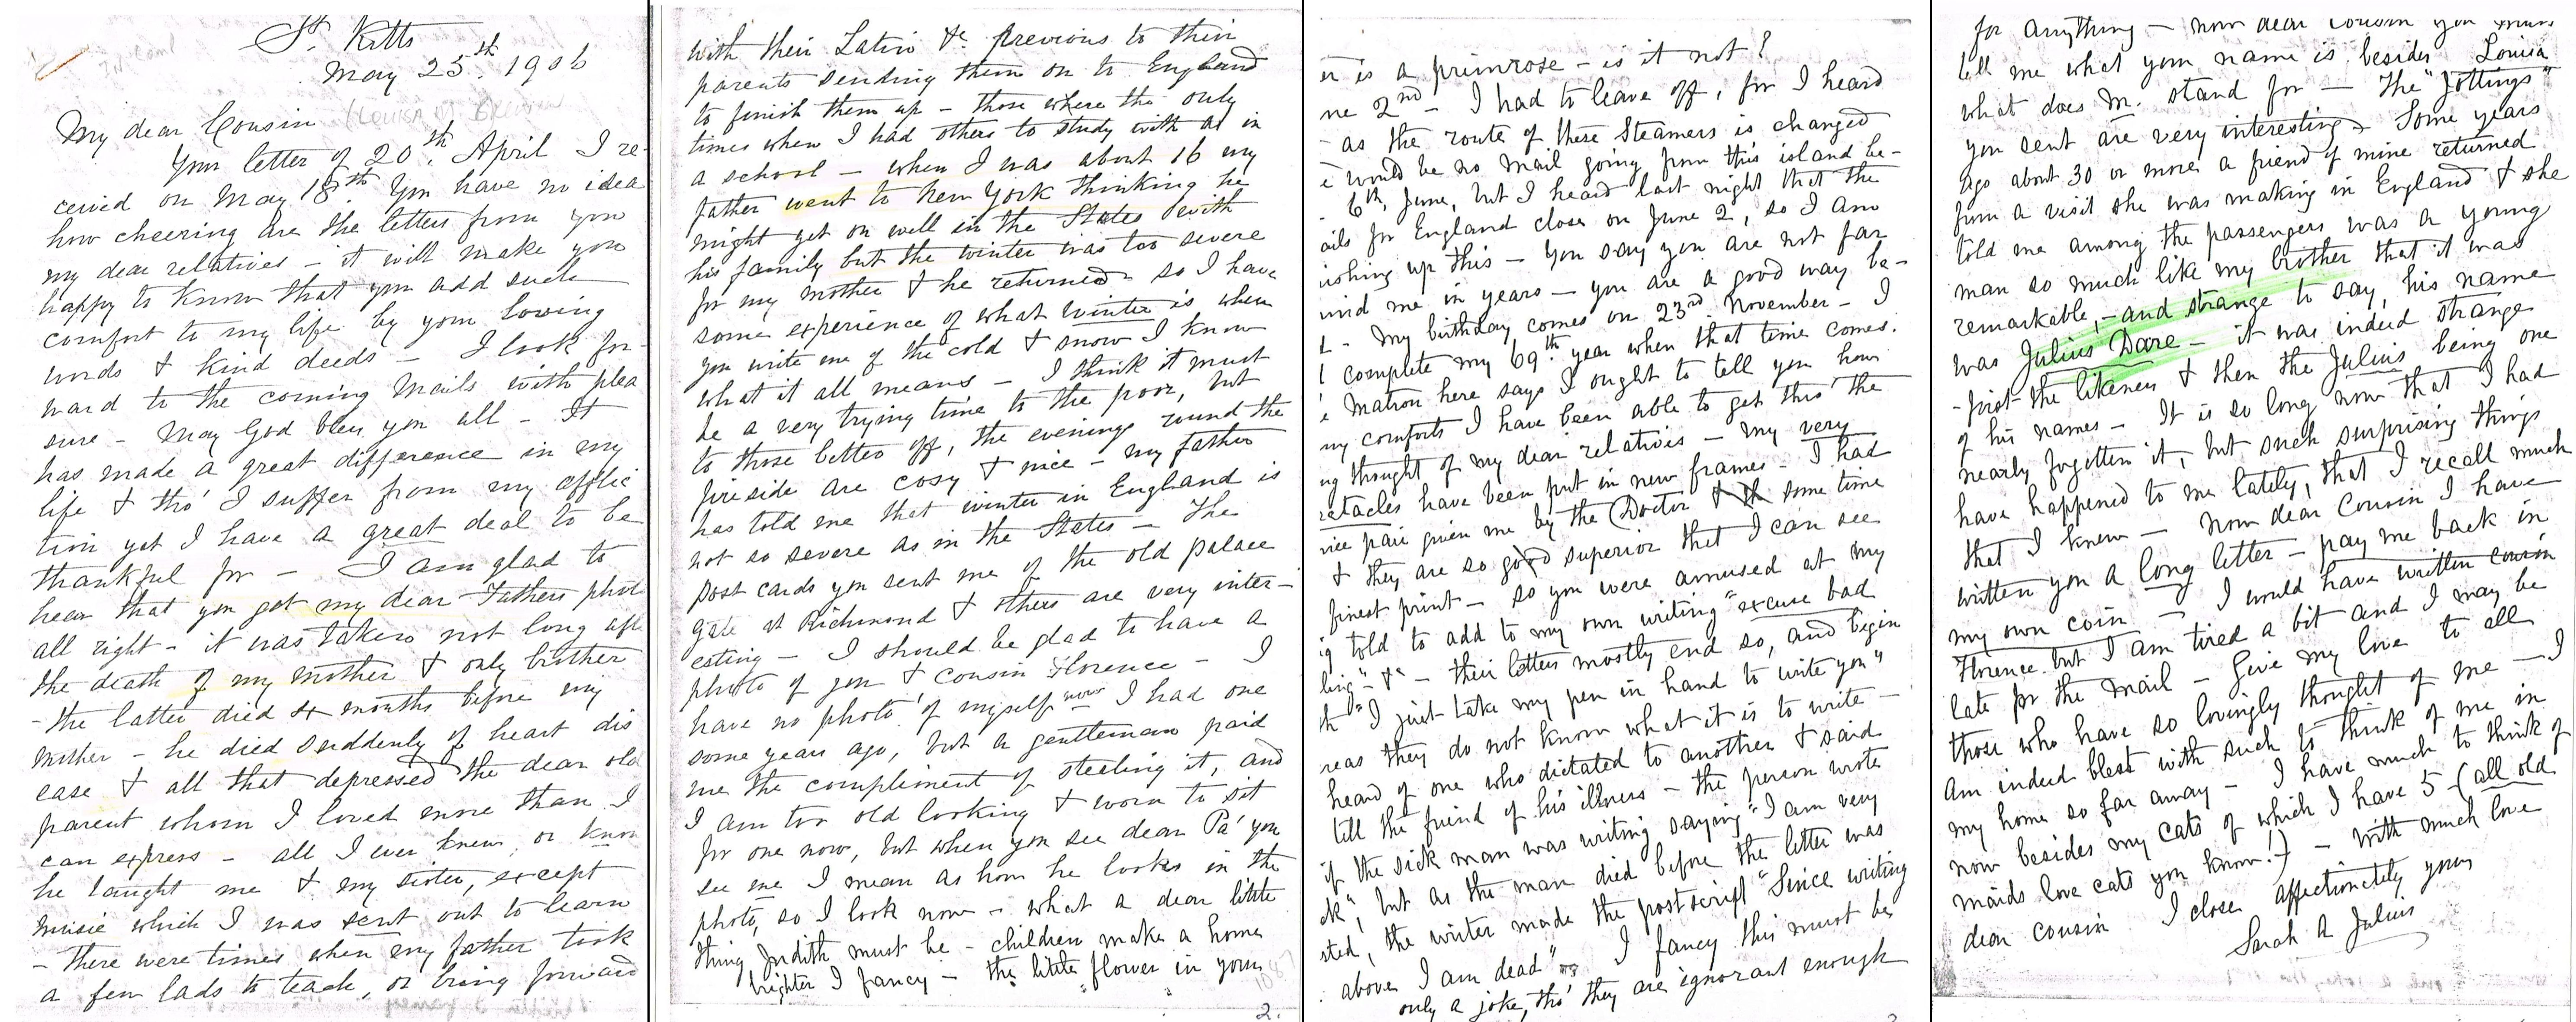 St. Kitts
May 25th. 1906
My dear Cousin
Your letter of 20th. April I re-
ceived on May 18th. You have no idea
how cheering are the letters from you
my dear relatives - it will make you
happy to know that you add such
comfort to my life by your loving
words & kind deeds - I look for-
ward to the coming Mails with plea
sure - May God bless you all - It
has made a great difference in my
life & tho' I suffer from my afflic
tion yet I have a great deal to be
thankful for - I am glad to
hear that you got my dear Fathers phot
all right - it was taken not long aft
the death of my mother & only brother
- the latter died months before my
mother - he died suddenly of heart dis
ease & all that depressed the dear old
parent whom I loved more than I
can express - all I ever knew, or know
he taught me & my sister, except
music which I was sent out to learn
- there were times when my father took
a few lads to teach, or bring forward
with their Latin &c previous to their
parents sending them on to England
to finish them up - those where the only
times when I had others to study with as in
a school - when I was about 16 my
father went to New York thinking he
might get on well in the States with
his family but the winter was too severe
for my mother & he returned - so I have
some experience of what winter is when
you write me of the cold & snow I know
what it all means - I think it must
be a very trying time to the poor, but
to those better off, the evenings round the
fireside are cosy & nice - my father
has told me that winter in England is
not so severe as in the States - The
post cards you sent me of the old palace
gate at Richmond & others are very inter-
esting - I should be glad to have a
photo of you & cousin Florence - I
have no photo' of myself now I had one
some years ago, but a gentleman paid
me the compliment of steeling it, and
I am too old looking & worn to sit
for one now, but when you see dear Pa' you
see me I mean as how he looks in the
photo, so I look now - what a dear little
thing Judith must be - children make a home
brighter I fancy - the little flower in your
2.
er is a primrose - is it not?
ne 2nd - I had to leave off, for I heard
- as the route of these Steamers is changed
e would be no mail going from this island be-
- 6th, June, but I heard last night that the
ails for England close on June 2, so I am
ishing up this - You say you are not far
ind me in years - you are a good way be-
- My birthday comes on 23rd. November - I
l complete my 69th. year when that time comes.
e Matron here says I ought to tell you how
ny comforts I have been able to get thro' the
ng thought of my dear relatives - my very
ectacles have been put in new frames - I had
nice pair given me by the Doctor some time
& they are so good superior that I can see
finest print - so you were amused at my
g told to add to my own writing "excuse bad
ling" &c - their letters mostly end so, and begin
th "I just take my pen in hand to write you"
reas they do not know what it is to write -
heard of one who dictated to another & said
tell the friend of his illness - the person wrote
if the sick man was writing saying "I am very
ck", but as the man died before the letter was
sted, the writer made the postscript "Since writing
above I am dead" I fancy this must be
only a joke, tho' they are ignorant enough
for anything - now dear cousin you must
tell me what your name is besides Louisa
what does M. stand for - The "Jottings"
you sent are very interesting - Some years
ago about 30 or more a friend of mine returned
from a visit she was making in England & she
told me among the passengers was a young
man so much like my brother that it was
remarkable, - and strange to say, his name
was Julius Dare - it was indeed strange
- first the likeness & then the Julius being one
of his names - It is so long now that I had
nearly forgotten it, but such surprising things
have happened to me lately, that I recall much
that I knew - Now dear Cousin I have
written you a long letter - pay me back in
my own coin - I would have written cousin
Florence but I am tired a bit and I may be
late for the Mail - Give my love to all
those who have so lovingly thought of me - I
am indeed blest with such to think of me in
my home so far away - I have much to think of
now besides my cats of which I have 5 - (all old
maids love cats you know!) - With much love
dear cousin I close affectionately yours
Sarah A Julius